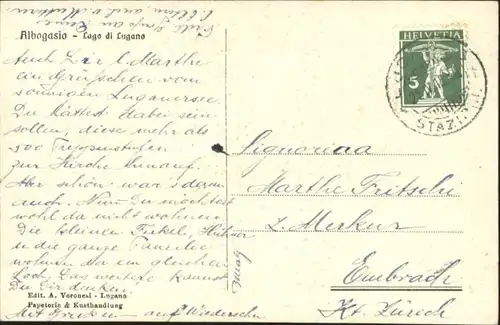 Albogasio - Lago di Lugano
Auch Dir l. Marthe
ein Grüsschen vom
sonnigen Luganersee.
Du hättest dabei sein
sollen, diese mehr als
500 Treppenstufen
zur Kirche hinauf.
Aber schön war's daran
auch. Nur Du möchtest
wohl da nicht wohnen
Die kleinen Ferkel, Hühner
u die ganze Familie
wohnen da im gleichen
Loch. Das weitere kannst
Du Dir denken!
Edit. A. Veronesi - Lugano
Papeterie & Kunsthandlung
Mit Grüssen - auf Wiedersehn
HELVETIA
5
STAZ
Signorina
Marthe Fritschi
z. Merkur
Embrach
Kt. Zürich